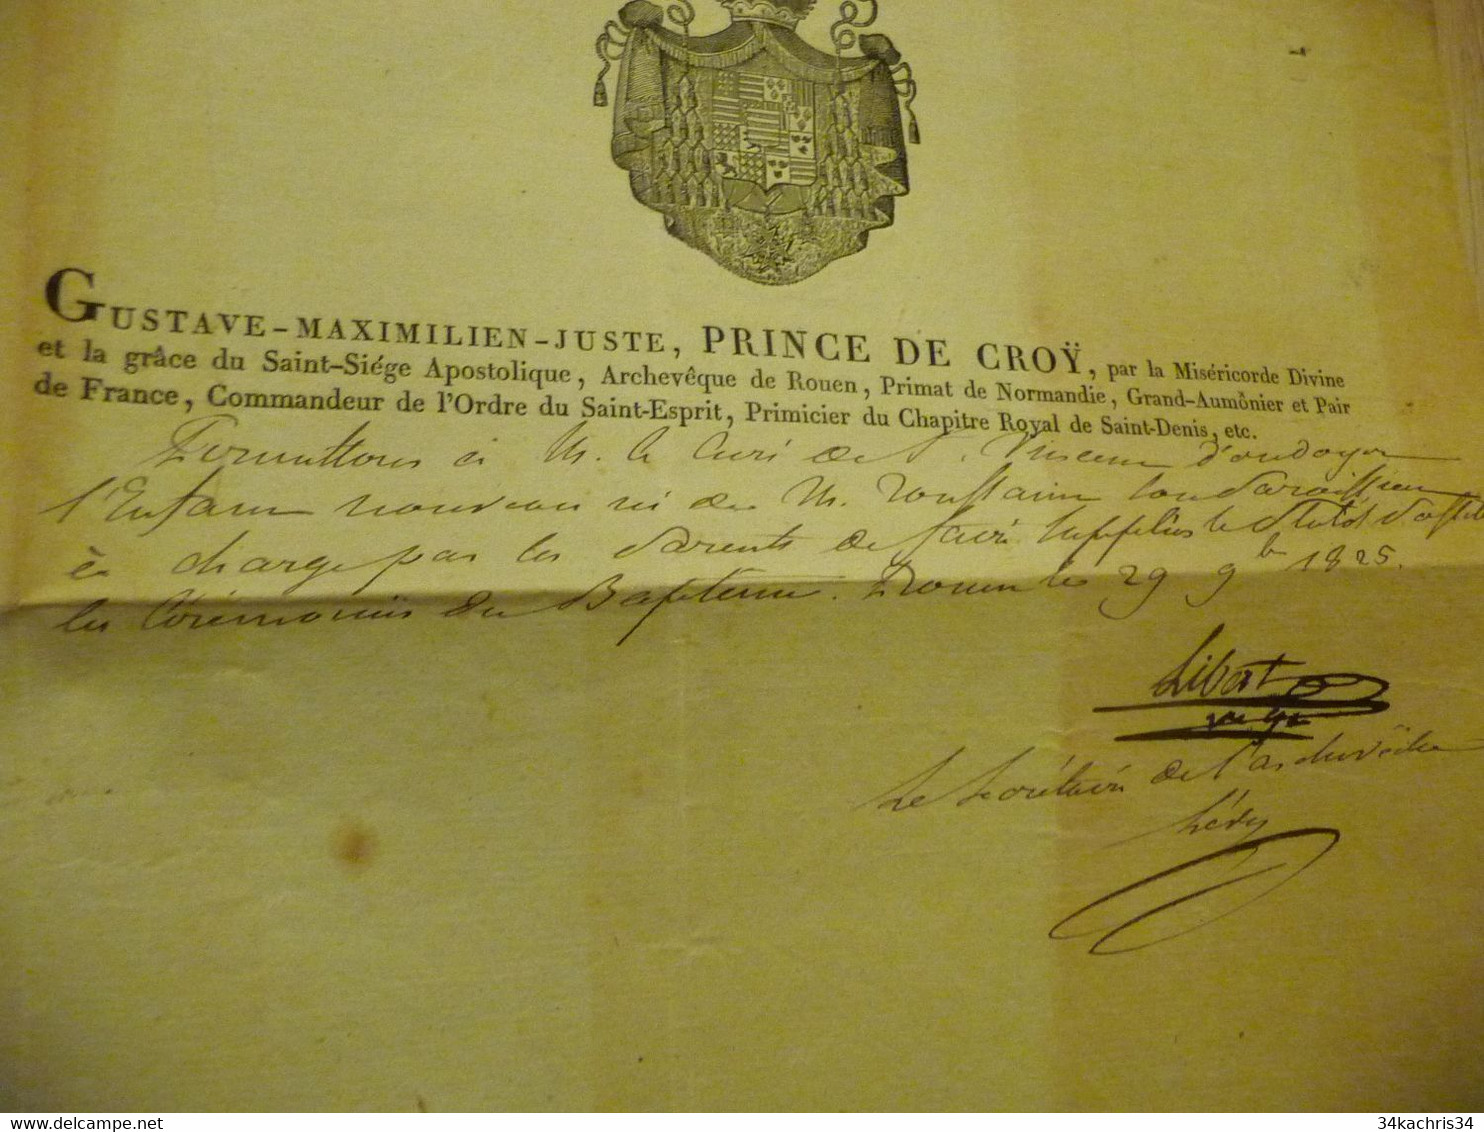 GUSTAVE-MAXIMILIEN-JUSTE, PRINCE DE CROŸ, par la Miséricorde Divine
et la grâce du Saint-Siége Apostolique, Archevêque de Rouen, Primat de Normandie, Grand-Aumônier et Pair
de France, Commandeur de l'Ordre du Saint-Esprit, Primicier du Chapitre Royal de Saint-Denis, etc.
Permettons à M. le Curé de St. Vincent d'ondoyer
l'Enfant nouveau né de M. Toustain son Paroissien
à charge par les Parents de faire suppléer le plutôt possible
les Cérémonies du Baptême. Rouen le 29 9bre 1825.
Libert
Le Secrétaire de l'archevêché
34kachris34